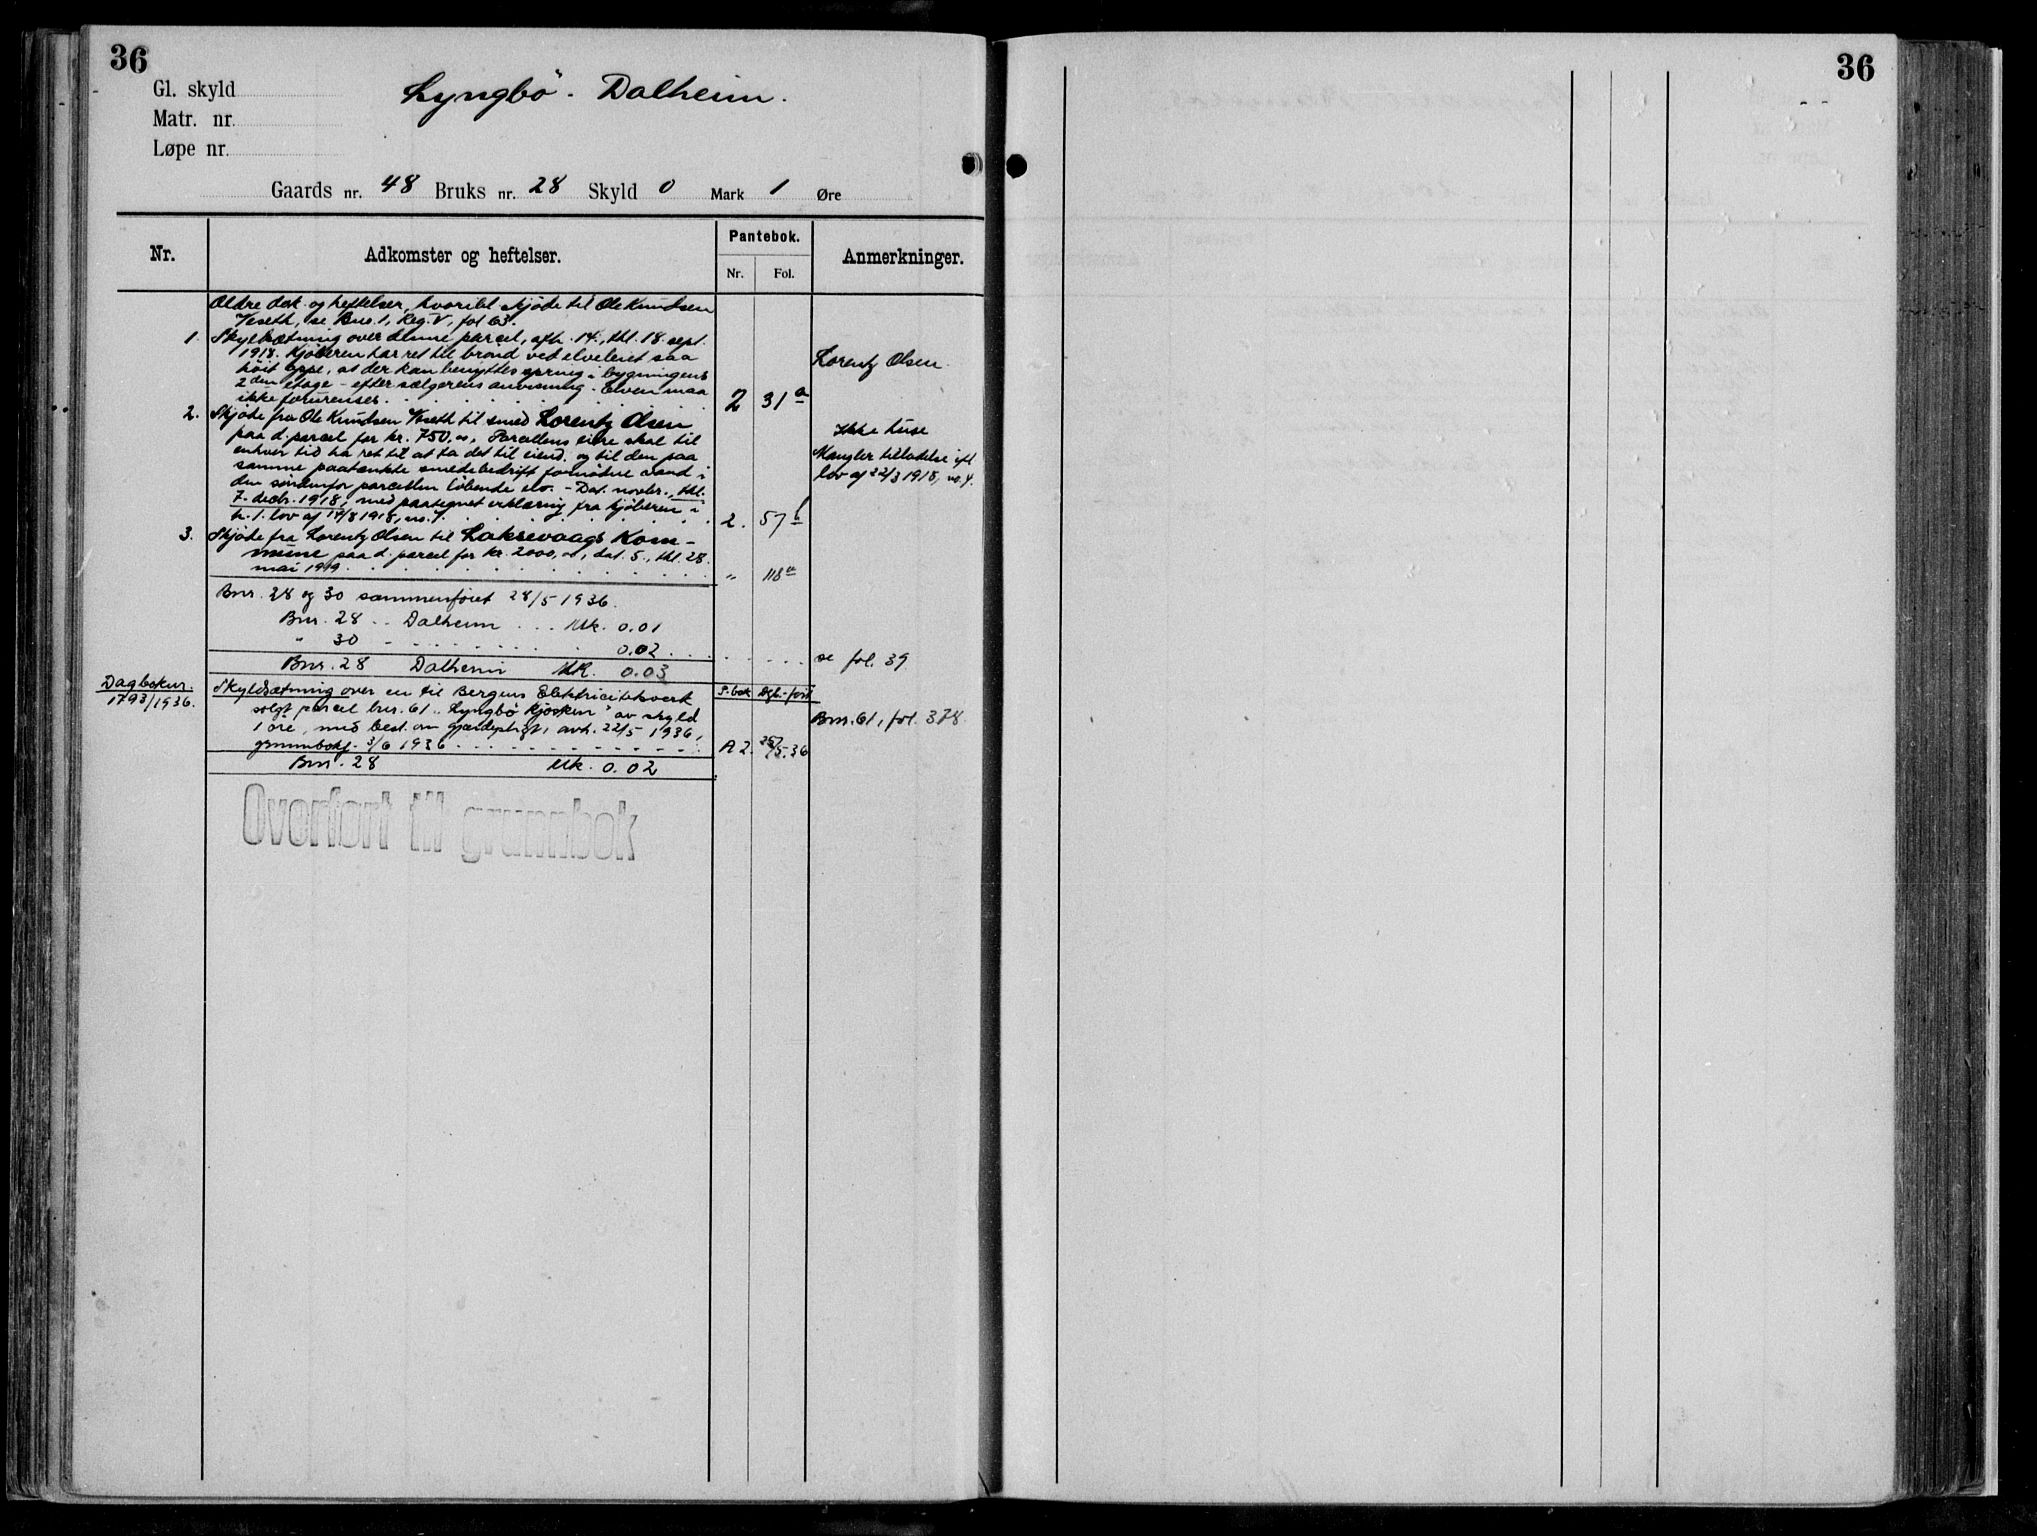 36
36
Gl. skyld
Lyngbö. Dalheim.
Matr. nr.
Løpe nr.
Gaards nr. 48 Bruks nr. 28 Skyld 0 Mark 1 Øre
Nr. Adkomster og heftelser. Pantebok. Anmerkninger.
Nr. Fol.
Ældre dok. og heftelser, hvoribl. skjöde til Ole Knudsen
Veseth, se Bno. 1, Reg. V, fol 63.
1. Skyldsætning over denne parcel, afh. 14., thl. 18. sept.
1918. Kjöberen har ret til brönd ved elveleiet saa Lorentz Olsen.
höit oppe, at der kan benyttes spring i bygningens
2den etage - efter sælgerens anvisning. Elven maa
ikke forurenses. 2 31a
2. Skjöde fra Ole Knudsen Veseth til smed Lorentz Olsen
paa d. parcel for kr. 750.00. Parcellens eiere skal til Ikke huse
enhver tid ha ret til at ta det til eiend. og til den paa Mangler tilladelse ifl.
samme paatænkte smedebedrift fornödne vand i lov af 22/3 1918, no. 4.
den söndenfor parcellen löbende elv. - Dat. novbr., thl.
7. decbr. 1918, med paategnet erklæring fra kjöberen i
h. t. lov af 14/8 1918, no. 1. 2. 57b
3. Skjöde fra Lorentz Olsen til Laksevaags Kom-
mune paa d. parcel for kr. 2000,00, dat. 5., thl. 28.
mai 1919. " 118a
Bnr. 28 og 30 sammenföiet 28/5 1936.
Bnr. 28 .. Dalheim ... Mk. 0.01
" 30 - 0.02 se fol. 39
Bnr. 28 Dalheim Mk. 0.03
Dagboknr. Skyldsætning over en til Bergens Elektricitetsverk P.bok Dgb.-ført
1793/1936. solgt parcel bnr. 61 "Lyngbö Kjosken" av skyld Bnr. 61, fol. 378.
1 öre, med best. om gjerdeplikt, avh. 22/5 1936,
grunnbokf. 3/6 1936 A 2. 25/5.36
Bnr. 28 Mk. 0.02
Overført til grunnbok